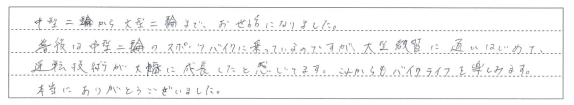 中型二輪から大型二輪まで、お世話になりました。
普段は中型二輪のスポーツバイクに乗っているのですが、大型教習に通いはじめて、
運転技術が大幅に成長したと感じてます。これからもバイクライフを楽しみます。
本当にありがとうございました。